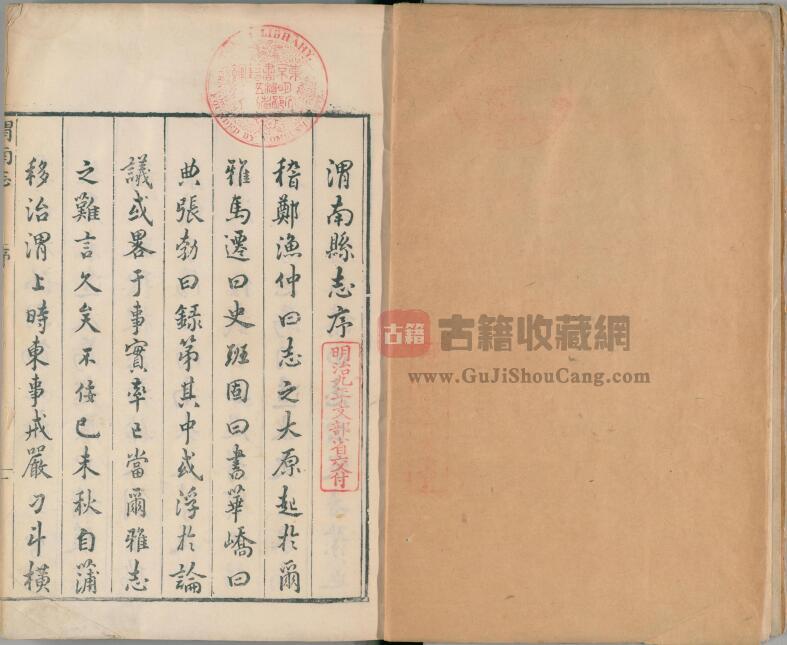 渭南縣志序
稽鄭漁仲曰志之大原起於爾
雅馬遷曰史班固曰書華嶠曰
典張勃曰録第其中或浮於論
議或畧于事實率已當爾雅志
之難言久矣不佞己未秋自蒲
移治渭上時東事戒嚴刁斗橫
渭南志
序
明治九年文部省交付
LIBRARY.
古籍
古籍收藏網
www.GuJiShouCang.com